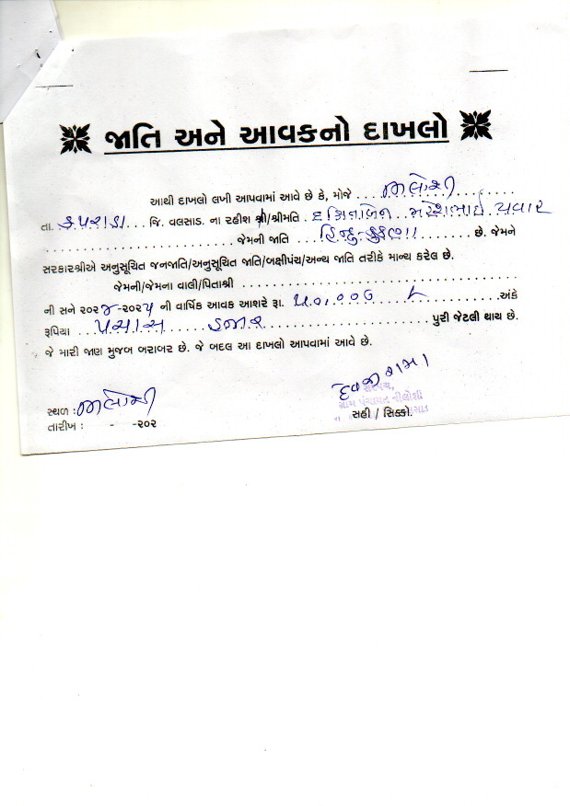 જાતિ અને આવકનો દાખલો
આથી દાખલો લખી આપવામાં આવે છે કે, મોજે
તા. કપરાડા જિ. વલસાડ. ના રહીશ શ્રી/શ્રીમતિ મહેશભાઇ પવાર
જેમની જાતિ હિન્દુ-કુકણા છે. જેમને
સરકારશ્રીએ અનુસૂચિત જનજાતિ/અનુસૂચિત જાતિ/બક્ષીપંચ/અન્ય જાતિ તરીકે માન્ય કરેલ છે.
જેમની/જેમના વાલી/પિતાશ્રી
ની સને ૨૦૨૪-૨૦૨૫ ની વાર્ષિક આવક આશરે રૂા. ૫૦,૦૦૦ અંકે
રૂપિયા પચાસ હજાર પુરી જેટલી થાય છે.
જે મારી જાણ મુજબ બરાબર છે. જે બદલ આ દાખલો આપવામાં આવે છે.
સ્થળ :
સરપંચ,
ગ્રામ પંચાયત નીલોશી
તારીખ : - -૨૦૨ સહી / સિક્કો